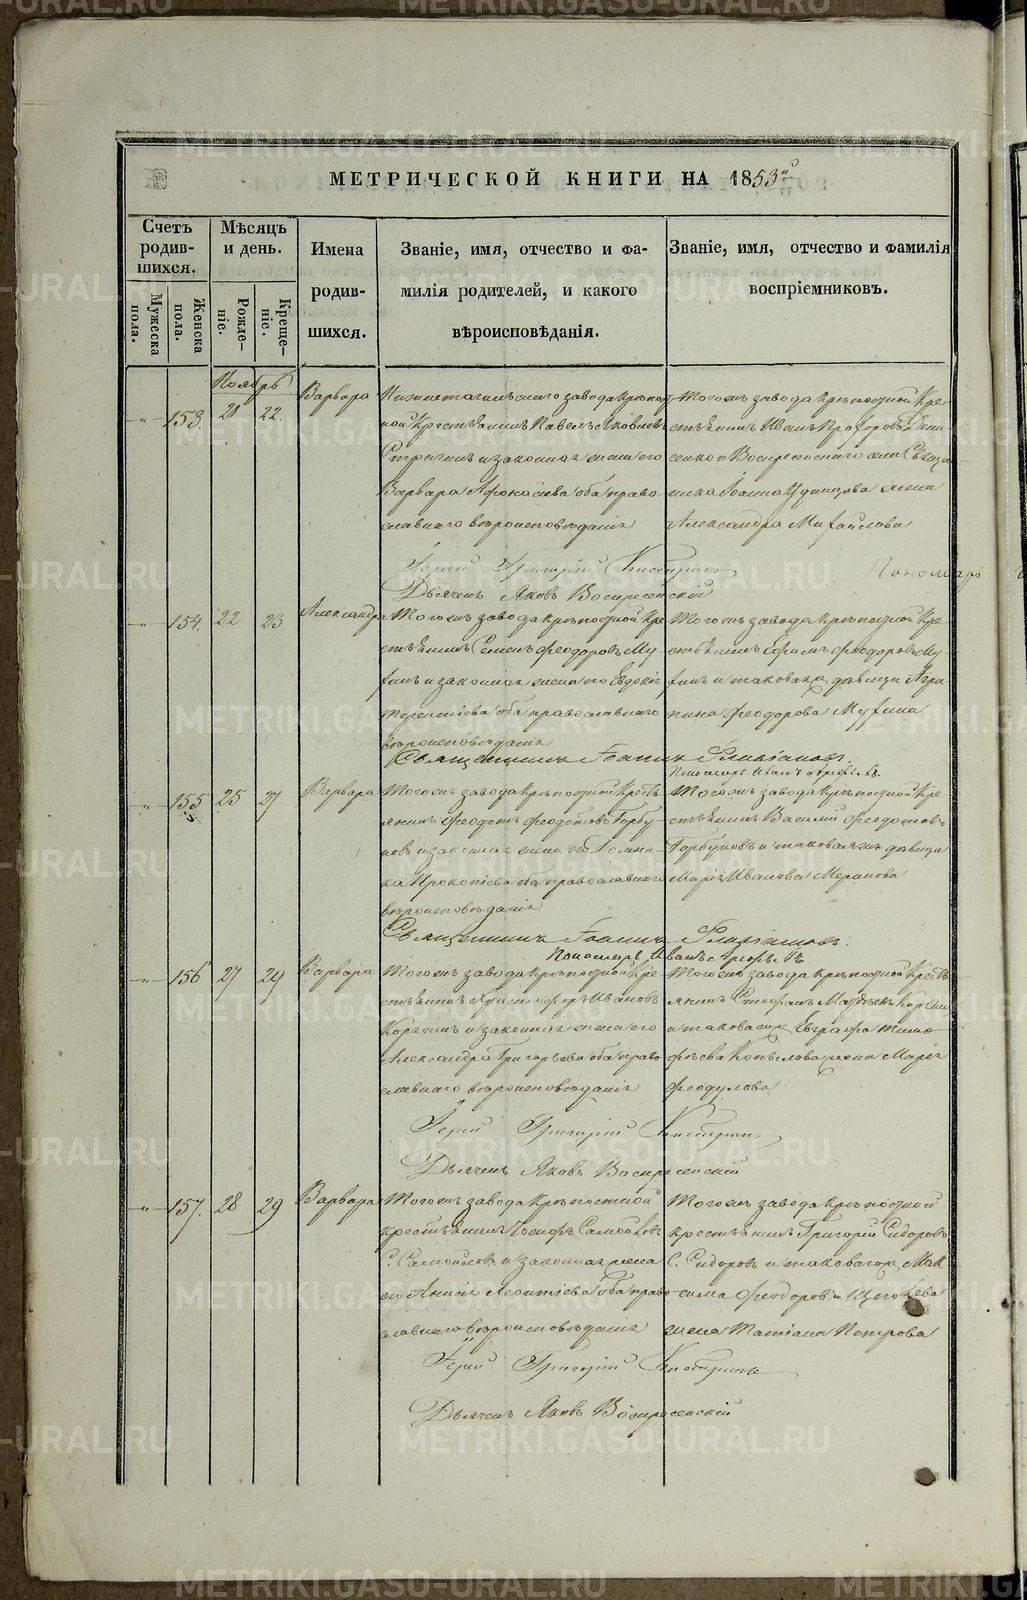 МЕТРИЧЕСКОЙ КНИГИ НА 1853й
Счетъ родив-шихся.
Мужеска пола.
Женска пола.
Мѣсяцъ и день.
Рожде-ніе.
Креще-ніе.
Имена
родив-
шихся.
Званіе, имя, отчество и фа-
милія родителей, и какого
вѣроисповѣданія.
Званіе, имя, отчество и фамилія
воспріемниковъ.
Ноябрь
153. 21 22. Варвара
Нижнетагильскаго завода крѣпост-
ной крестьянинъ Павелъ Яковлевъ
и законная жена его
Варвара Афонасіева оба право-
славнаго вѣроисповѣданія
Тогожъ завода крѣпостной кре-
стьянинъ Иванъ
сенко и Воскресенскаго села Свяще-
ника Іоанна Удинцова жена
Александра Михайлова
Іерей Григорій
Дьячекъ Яковъ Воскресенскій
Пономарь
154. 22 23 Александра
Тогожъ завода крѣпостной кре-
стьянинъ Семенъ Феодоровъ Му-
хинъ и законная жена его Евдокія
Терентіева оба православнаго
вѣроисповѣданія
Тогожъ завода крѣпостной кре-
стьянинъ Ефимъ Феодоровъ Му-
хинъ и таковагожъ дѣвица Агри-
пина Феодорова Мухина
Священникъ Іоаннъ Флавіановъ.
Пономарь Иванъ Арефьевъ
155 25 27 Варвара
Тогожъ завода крѣпостной кресть-
янинъ Феодотъ Феодотовъ Горбу-
новъ и законная жена его Домни-
ка Прокопіева оба православнаго
вѣроисповѣданія
Тогожъ завода крѣпостной кре-
стьянинъ Василій Феодотовъ
Горбуновъ и таковагожъ дѣвица
Марія Иванова Меринова
Священникъ Іоаннъ Флавіановъ.
Пономарь Иванъ Арефьевъ
156 27 29 Варвара
Тогожъ завода крѣпостной кре-
стьянинъ Христофоръ Ивановъ
и законная жена его
Александра Григорьева оба право-
славнаго вѣроисповѣданія
Тогожъ завода крѣпостной кресть-
янинъ Стефанъ
и таковагожъ Евграфа Тимо-
фѣева Копылова жена Марія
Феодулова
Іерей Григорій
Дьячекъ Яковъ Воскресенскій
157. 28 29 Варвара
Тогожъ завода крѣпостной
крестьянинъ Іосифъ Самойловъ
С. Самойловъ и законная жена
его Анисія Леонтіева оба право-
славнаго вѣроисповѣданія
Тогожъ завода крѣпостной
крестьянинъ Григорій Сидоровъ
С. Сидоровъ и таковагожъ Мак-
сима Феодорова Щеголева
жена Татіана Петрова
Іерей Григорій
Дьячекъ Яковъ Воскресенскій
METRIKI.GASO-URAL.RU